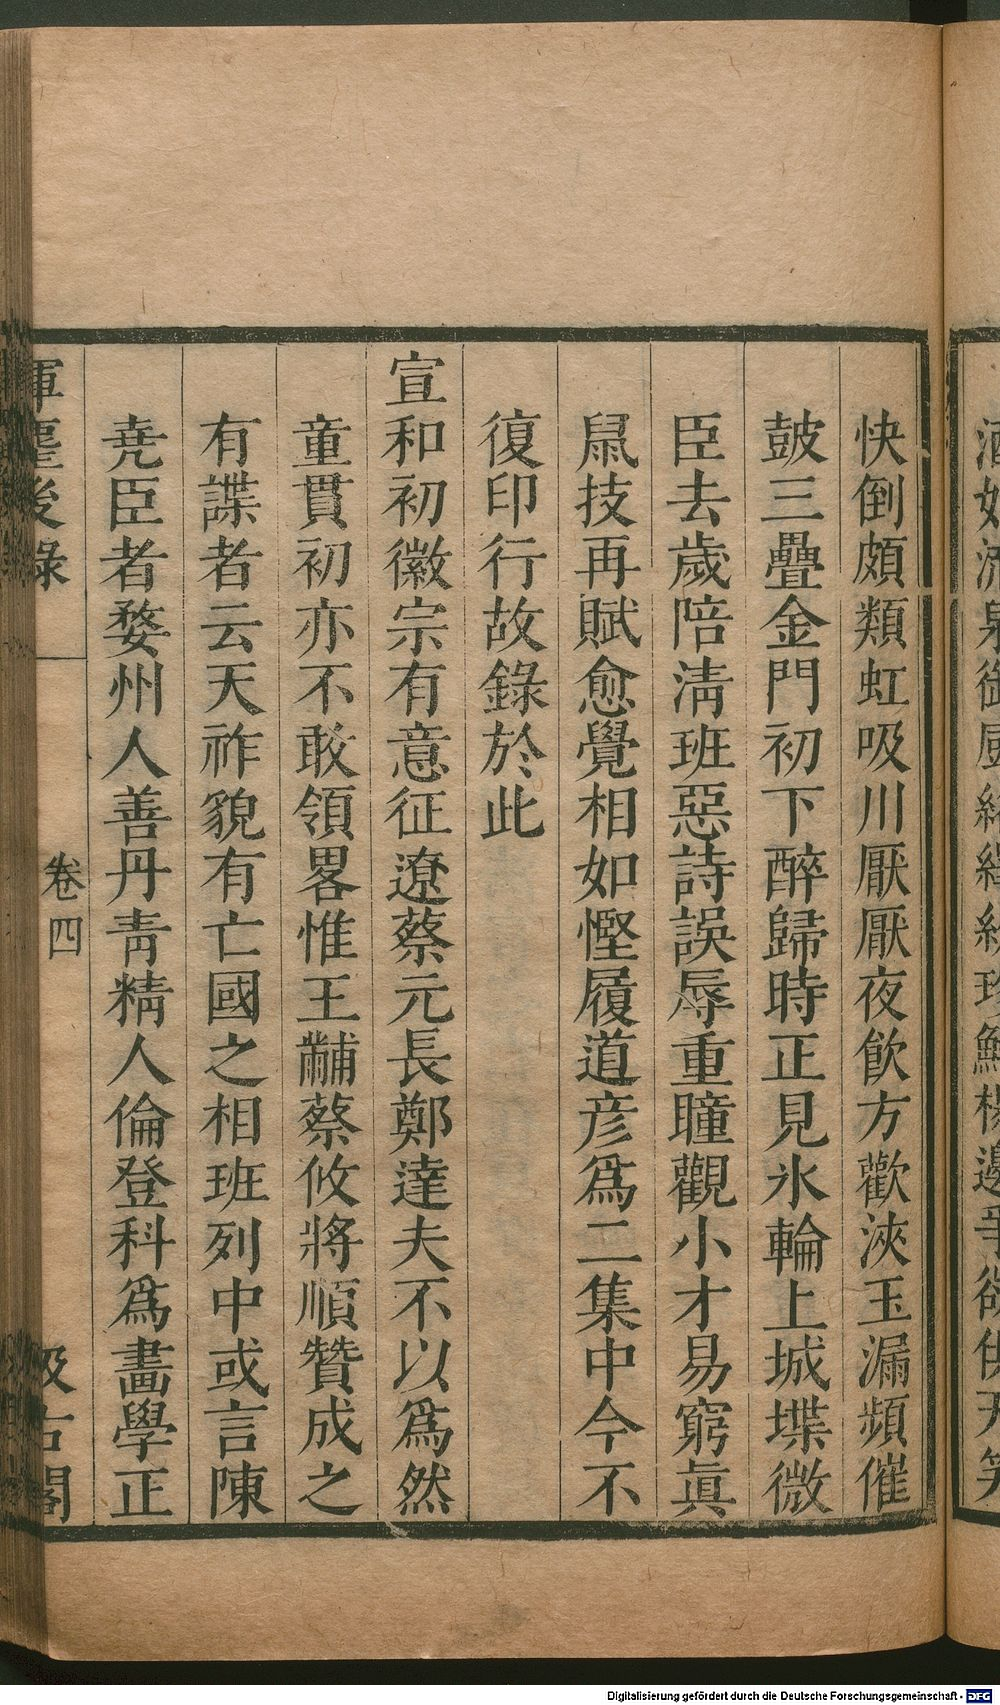 快倒頗類虹吸川厭厭夜飮方歡浹玉漏頻催
皷三疊金門初下醉歸時正見氷輪上城堞微
臣去歲陪淸班惡詩誤辱重瞳觀小才易窮眞
鼠技再賦愈覺相如慳履道彦爲二集中今不
復印行故錄於此
宣和初徽宗有意征遼蔡元長鄭達夫不以爲然
童貫初亦不敢領畧惟王黼蔡攸將順贊成之
有諜者云天祚貌有亡國之相班列中或言陳
尭臣者婺州人善丹靑精人倫登科爲畫學正
揮麈後錄
卷四
汲古閣
Digitalisierung gefördert durch die Deutsche Forschungsgemeinschaft - DFG